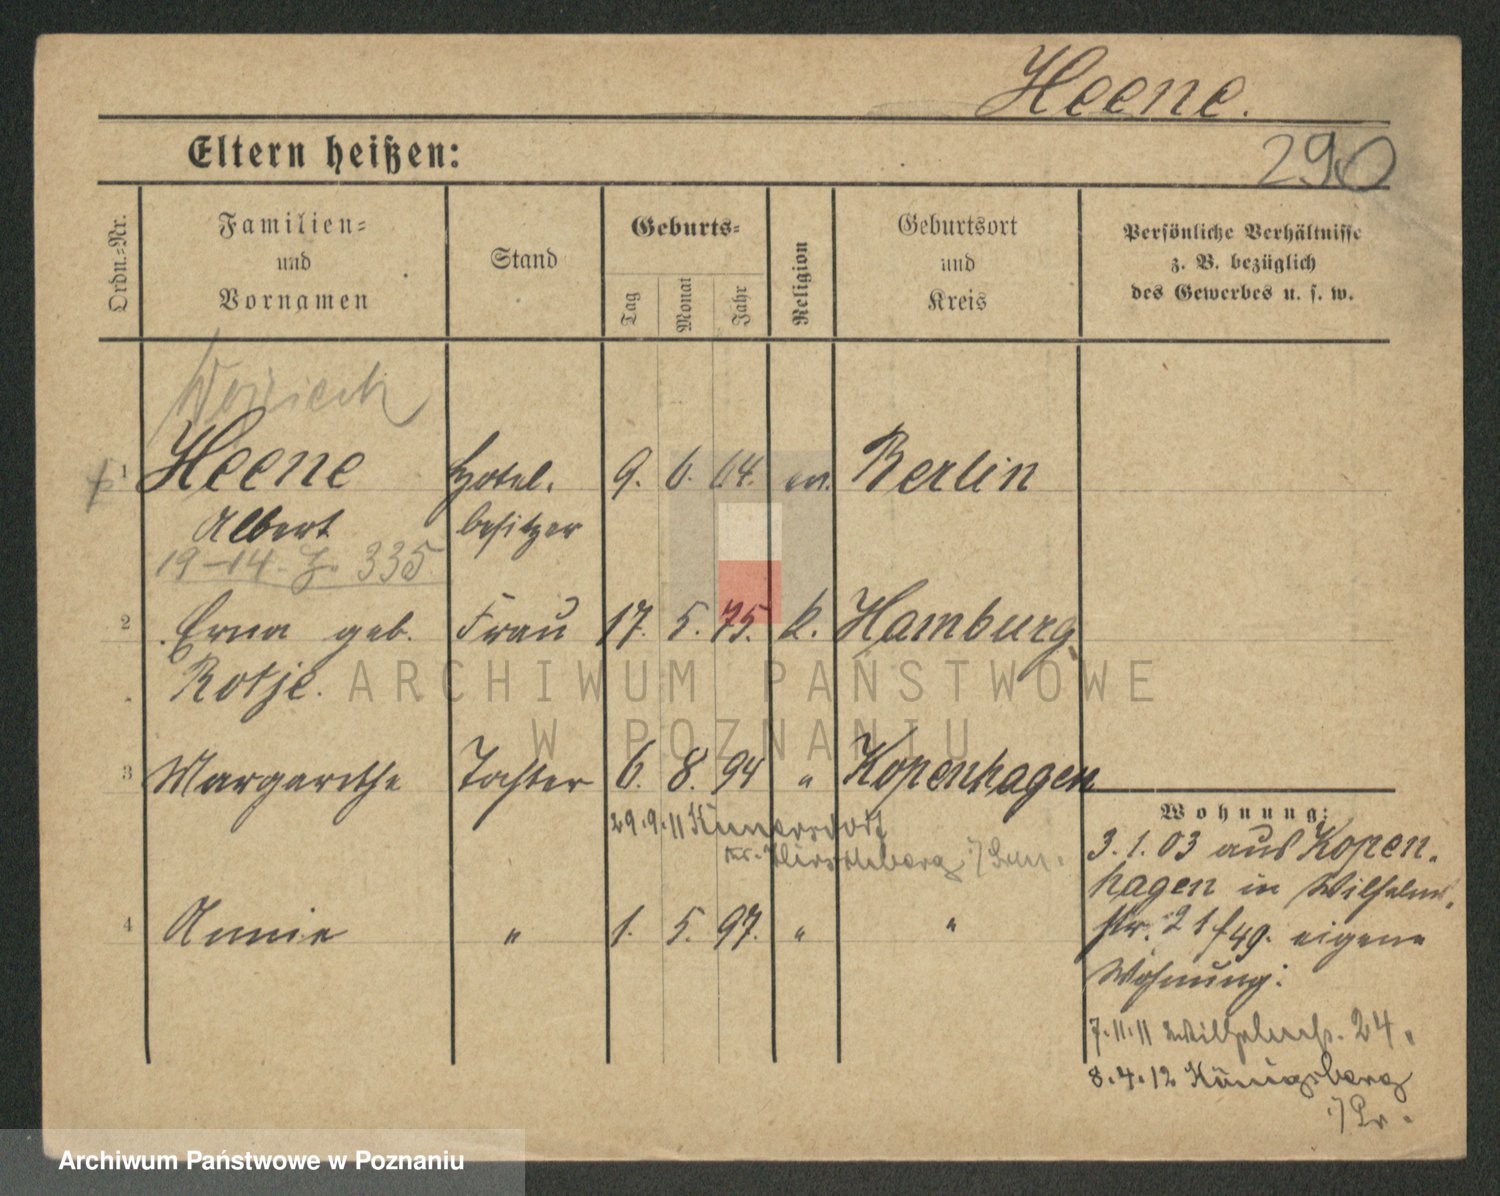 Heene.
Eltern heißen:
290
Ordn.=Nr.
Familien=
und
Vornamen
Stand
Geburts=
Tag
Monat
Jahr
Religion
Geburtsort
und
Kreis
Persönliche Verhältnisse
z. B. bezüglich
des Gewerbes u. s. w.
1 Heene Hotel. 9. 6. 64. ev. Berlin
Albert besitzer
19-14. 335
2 Erna geb. Frau 17. 5. 75. k. Hamburg
Rotje.
ARCHIWUM PAŃSTWOWE
W POZNANIU
3 Margarethe Tochter 6. 8. 94 " Kopenhagen
29.9.11 Kunersdorf
Kr. Hirschberg
4 Annie " 1. 5. 97. " "
Wohnung:
3.1.03 aus Kopen-
hagen in Wilhelm-
str. 21 eigene
Wohnung:
7.11.11 Wilhelmstr. 24.
8.4.12 Königsberg
i/Pr.
Archiwum Państwowe w Poznaniu